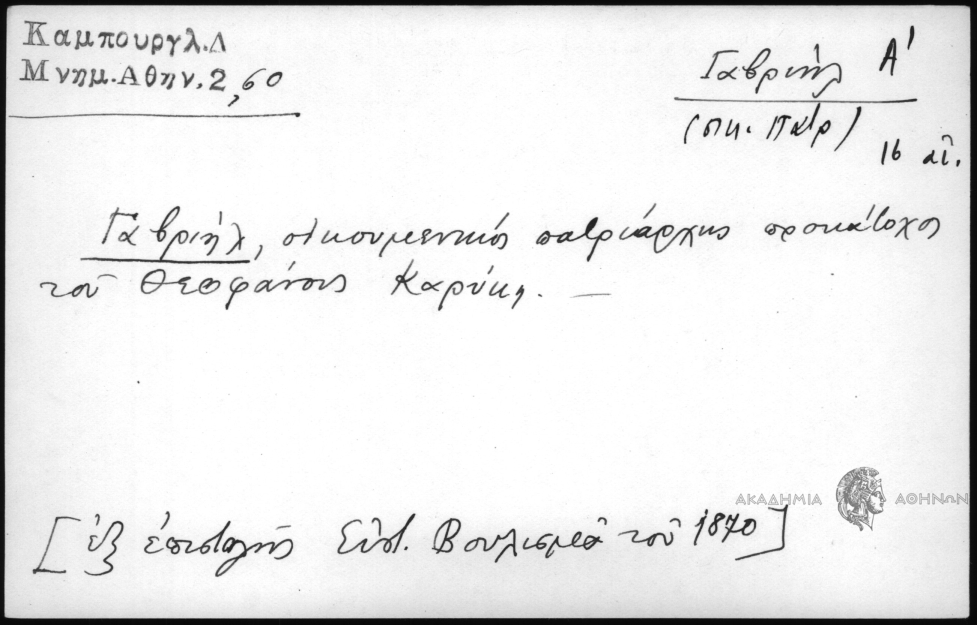 Καμπουργλ.Δ
Μνημ.Αθην.2,60
Γαβριήλ Α'
(οικ. Πατρ)
16 αἰ.
Γαβριήλ, οἰκουμενικός πατριάρχης προκάτοχος
τοῦ Θεοφάνους Καρύκη. —
ΑΚΑΔΗΜΙΑ ΑΘΗΝΩΝ
[ἐξ ἐπιστολῆς Εὐστ. Βουλισμᾶ τοῦ 1870]